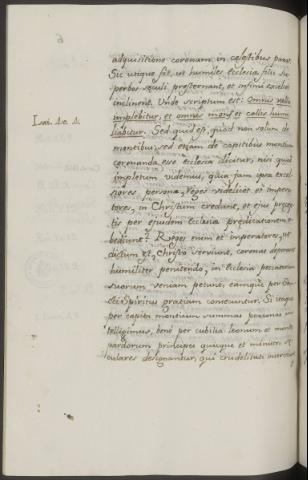 adquisitione coronam in cęlestibus parat.
Sic utique fit, ut humiles Ecclesię filii su-
perbos sęculi prosternant, et infimi excelsos
inclinent. Unde scriptum est: Omnis vallis
Isai. 40. 4.
implebitur, et omnis mons et collis humi-
liabitur. Sed quid est, quod non solum de
montibus, sed etiam de capitibus montium
coronanda esse Ecclesia dicitur, nisi quod
impletum videmus, quia jam ipsę excel-
siores personę, Reges videlicet et Impera-
tores, in Christum credunt, et ejus pręcep-
tis per ejusdem Ecclesię prędicationem o-
bediunt? Reges enim et imperatores, ut
dictum est, Christo serviunt, coronas deponunt
humiliter penitendo, in Ecclesia peccatorum
suorum veniam petunt, eamque per San-
cti Spiritus gratiam consecuntur. Si itaque
per capita montium summas personas in-
telligimus, bene per cubilia leonum et montes
pardorum principes quique et ministri sę-
culares designantur, qui crudelitati